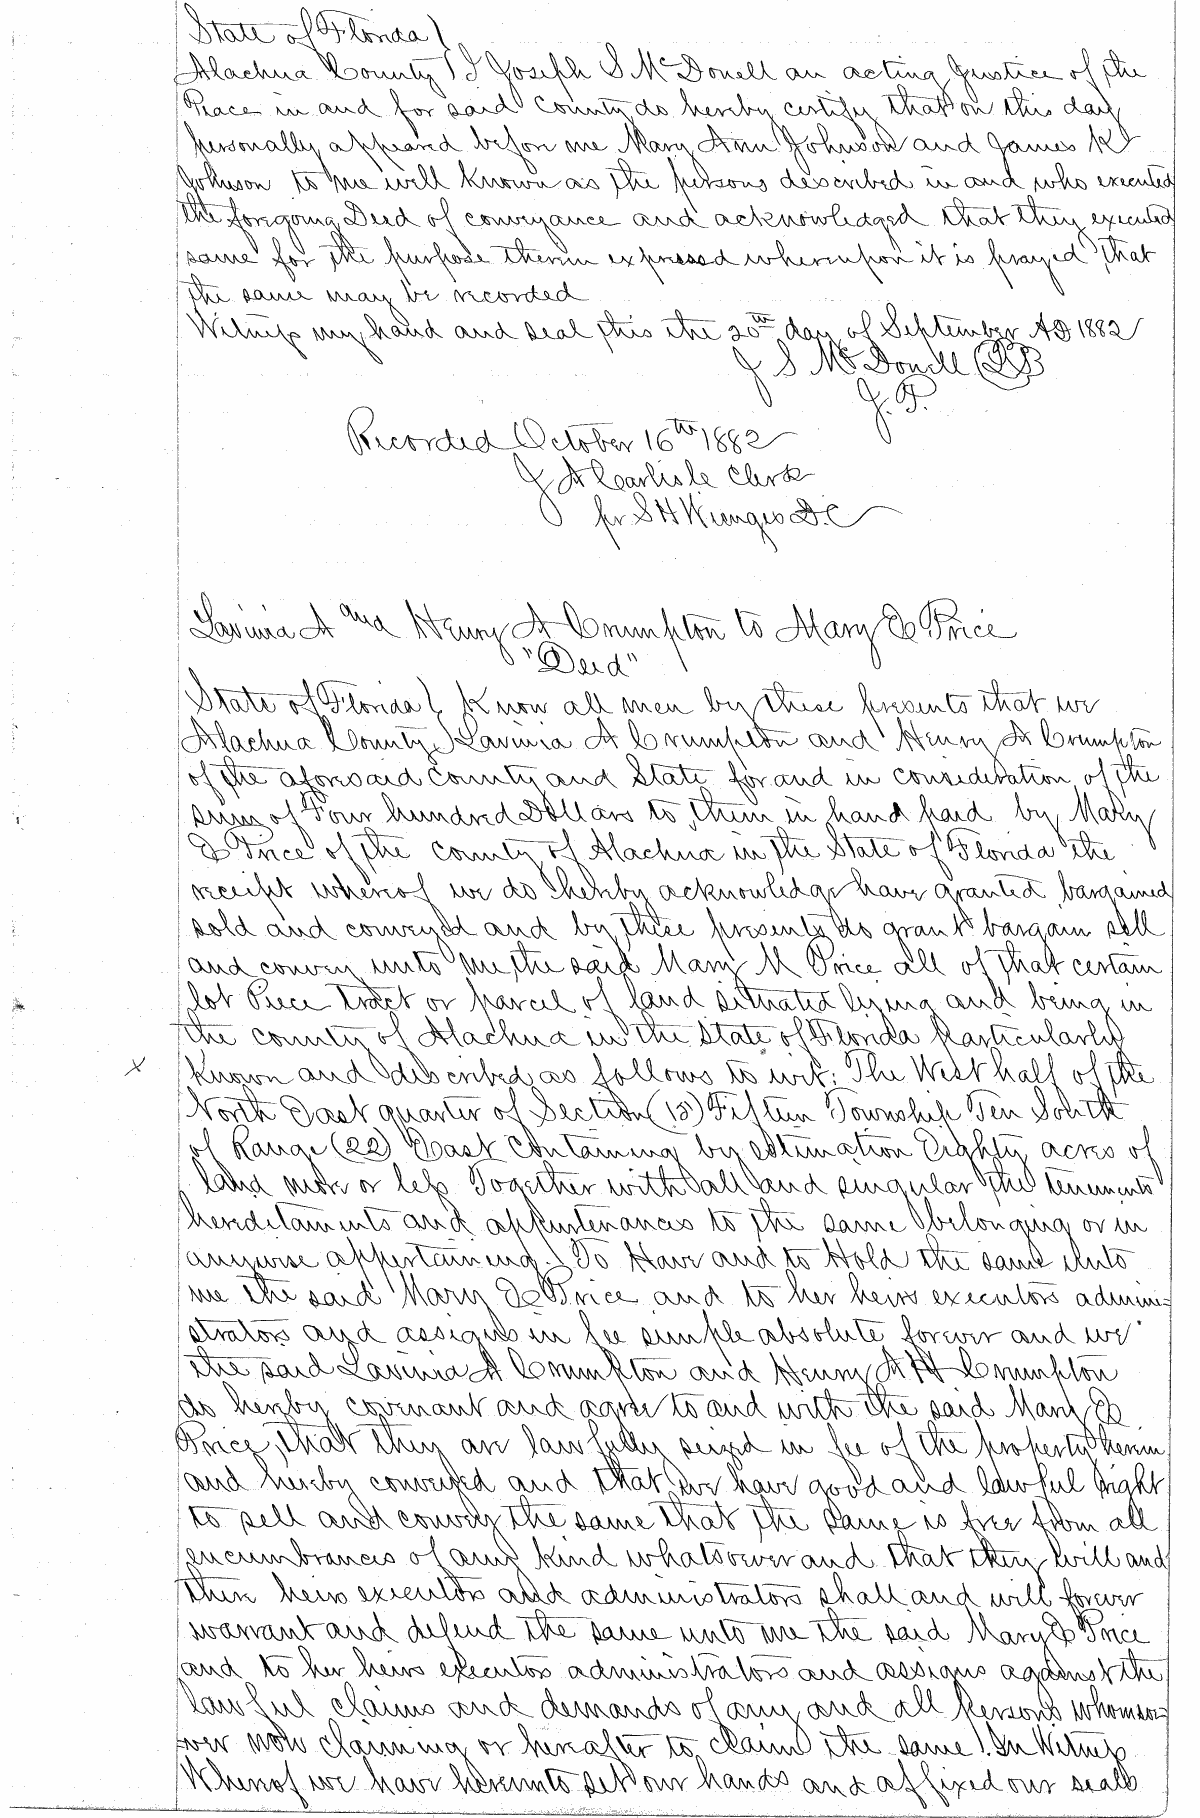 State of Florida }
Alachua County } I Joseph S McDonell an acting Justice of the
Peace in and for said County do hereby certify that on this day
personally appeared before me Mary Ann Johnson and James K
Johnson to me well known as the persons described in and who executed
the foregoing Deed of conveyance and acknowledged that they executed
same for the purpose therein expressed whereupon it is prayed that
the same may be recorded
Witness my hand and seal this the 20th day of September AD 1882
J S McDonell (LS)
J. P.
Recorded October 16th 1882
J A Carlisle Clerk
pr S H D.C
Lavinia A and Henry A Crumpton to Mary E Price
"Deed"
State of Florida } Know all men by these presents that we
Alachua County } Lavinia A Crumpton and Henry A Crumpton
of the aforesaid county and State for and in consideration of the
sum of Four hundred Dollars to them in hand paid by Mary
E Price of the county of Alachua in the State of Florida the
receipt whereof we do hereby acknowledge have granted bargained
sold and conveyed and by these presents do grant bargain sell
and convey unto me the said Mary M Price all of that certain
lot Piece tract or parcel of land situated lying and being in
the county of Alachua in the State of Florida Particularly
x known and described as follows to wit: The West half of the
North East quarter of Section (15) Fifteen Township Ten South
of Range (22) East Containing by estimation Eighty acres of
land more or less Together with all and singular the tenements
hereditaments and appurtenances to the same belonging or in
anywise appertaining. To Have and to Hold the same unto
me the said Mary E Price and to her heirs executors admini-
strators and assigns in fee simple absolute forever and we
the said Lavinia A Crumpton and Henry A Crumpton
do hereby covenant and agree to and with the said Mary E
Price, that they are lawfully seized in fee of the property herein
and hereby conveyed and that we have good and lawful right
to sell and convey the same that the same is free from all
encumbrances of any kind whatsoever and that they will and
there heirs executors and administrators shall and will forever
warrant and defend the same unto me the said Mary E Price
and to her heirs executors administrators and assigns against the
lawful claims and demands of any and all Persons whomso-
ever now claiming or hereafter to claim the same. In Witness
Whereof we have hereunto set our hands and affixed our seals